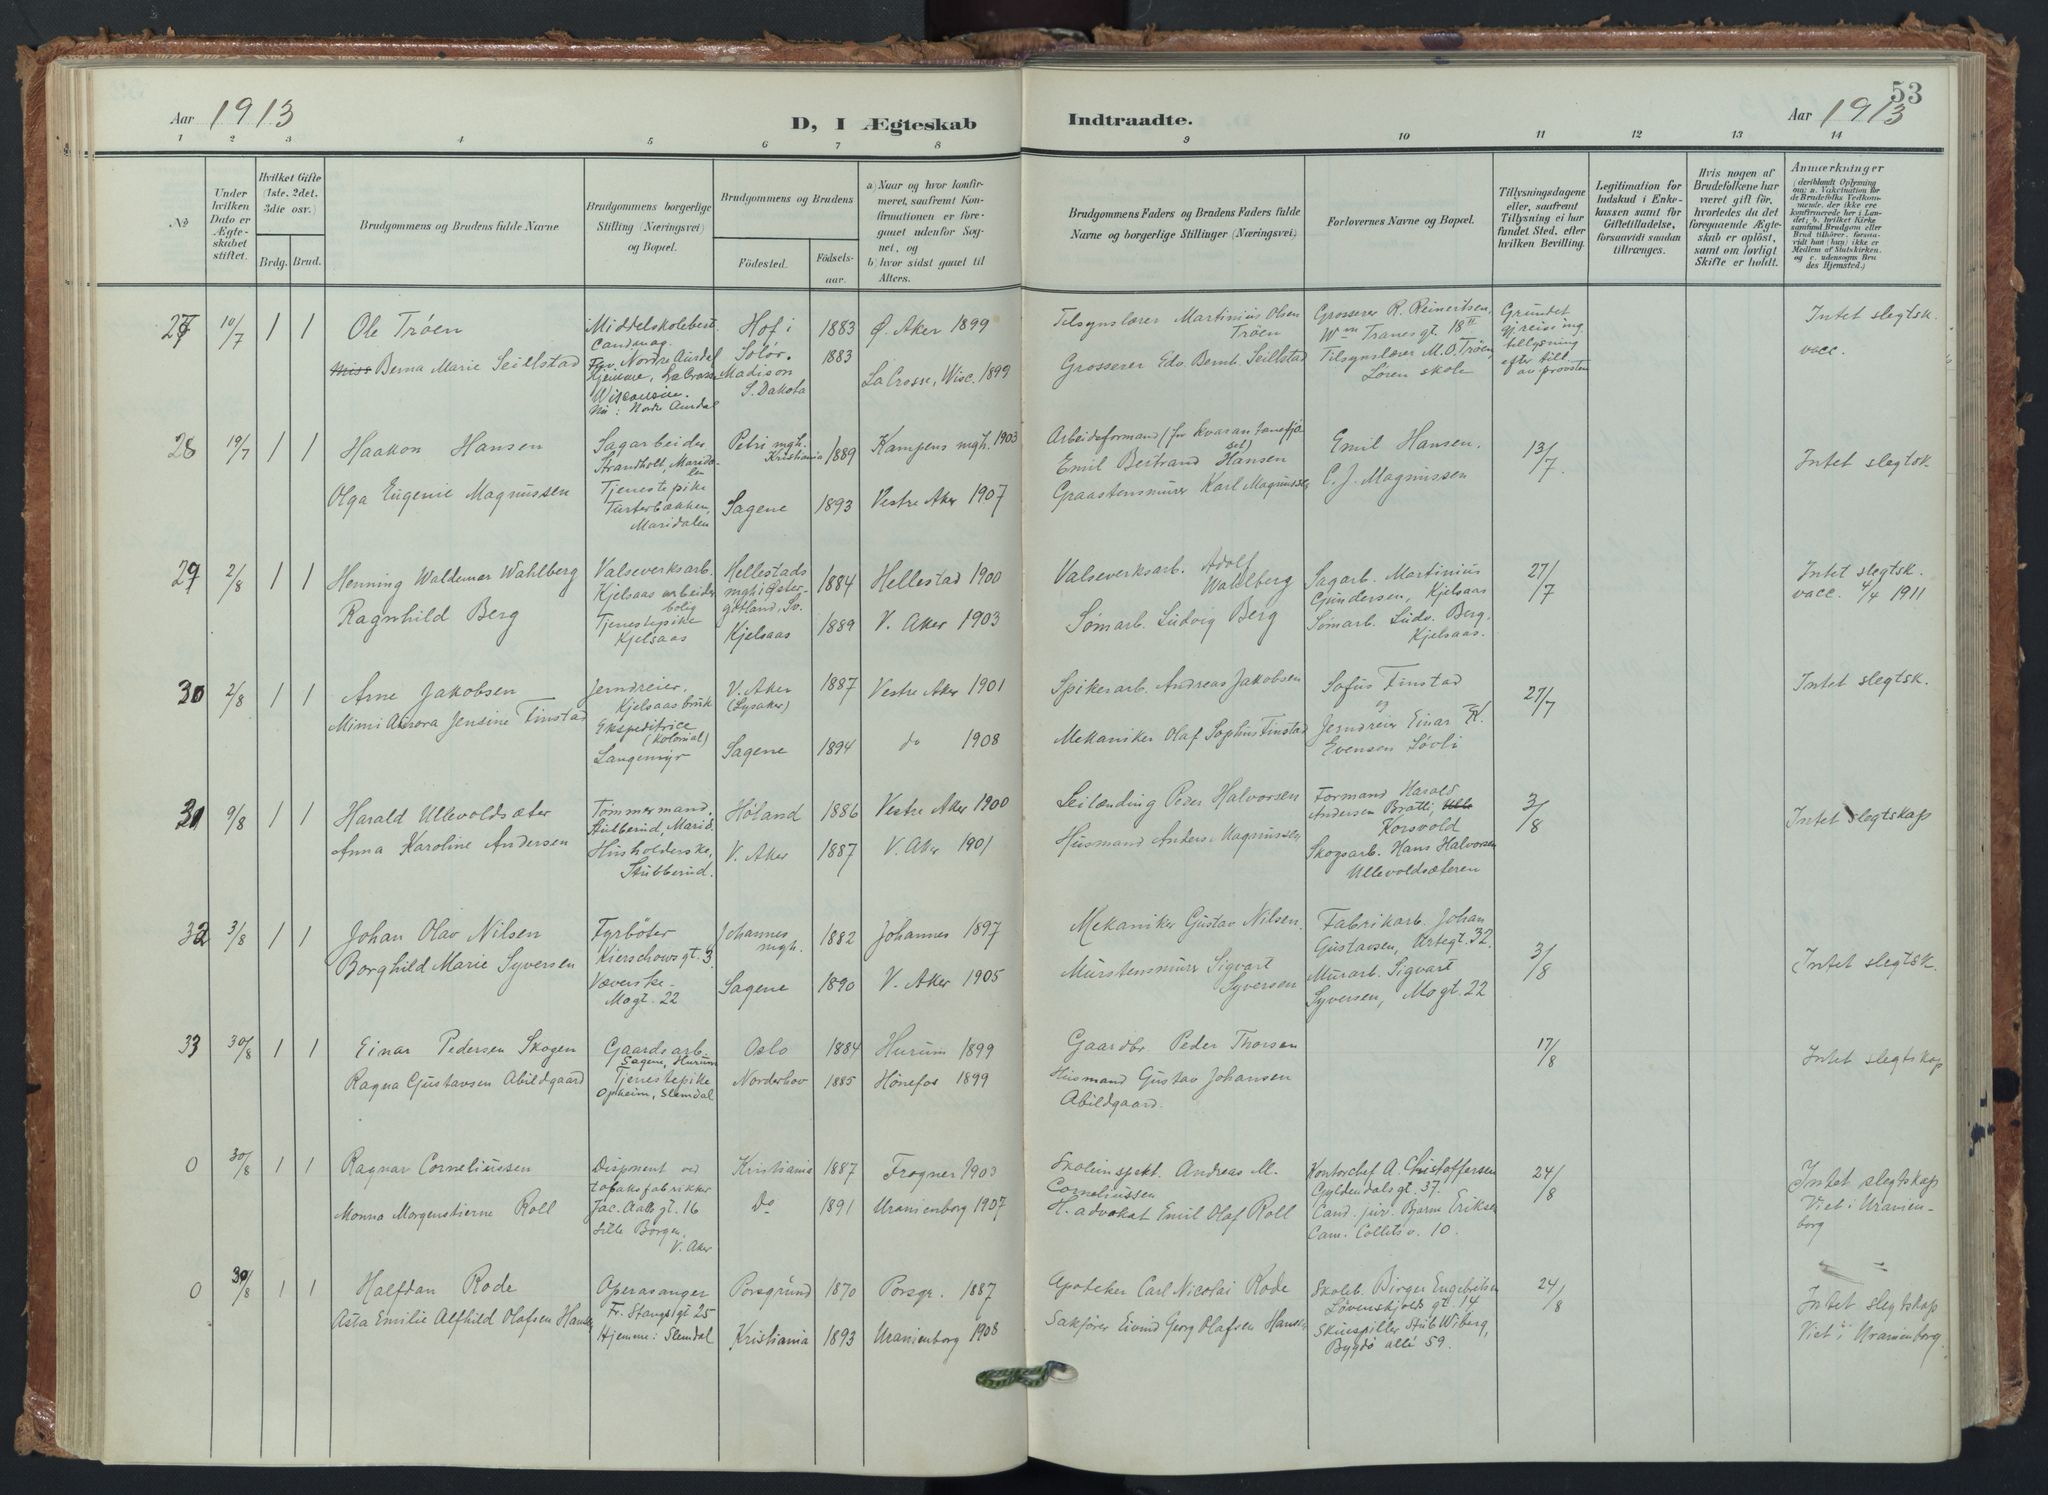 Aar 1913
D, I Ægteskab
Indtraadte.
53
Aar 1913
1 2 3 4 5 6 7 8 9 10 11 12 13 14
No
Under hvilken Dato er Ægteskabet stiftet.
Hvilket Gifte (1ste, 2det, 3die osv.)
Brdg. Brud.
Brudgommens og Brudens fulde Navne
Brudgommens borgerlige Stilling (Næringsvei) og Bopæl.
Brudgommens og Brudens
Födested.
Födselsaar.
a) Naar og hvor konfirmeret, saafremt Konfirmationen er foregaaet udenfor Sognet, og
b) hvor sidst gaaet til Alters.
Brudgommens Faders og Brudens Faders fulde Navne og borgerlige Stillinger (Næringsvei.)
Forlovernes Navne og Bopæl.
Tillysningsdagene eller, saafremt Tillysning ei har fundet Sted, efter hvilken Bevilling.
Legitimation for Indskud i Enkekassen samt for Giftetilladelse, forsaavidt saadan tiltrænges.
Hvis nogen af Brudefolkene har været gift før, hvorledes da det foregaaende Ægteskab er oplöst, samt om lovligt Skifte er holdt.
Anmærkninger
(deriblandt Oplysning om: a. Vakcination for de Brudefolks Vedkommende, der ikke ere konfirmerede her i Landet; b. hvilket Kirkesamfund Brudgom eller Brud tilhører, forsaavidt han (hun) ikke er Medlem af Statskirken, og c. udensogns Brudes Hjemsted.)
27 10/7 1 1 Ole Trøen
Middelskolebest. Cand. mag. Fgv. Nordre Aurdal
Hof i Solør. 1883
Ø. Aker 1899
Tilsynslærer Martinius Olsen Trøen
Grosserer R. Reinertsen, Wm Tranes gt. 18 II
Grundet gjreise ing tillysning efter till. av provsten
Intet slegtsk. vacc.
Miss Berna Marie Seillstad
Hjemme, La Crosse Wisconsin. Nu: Nordre Aurdal
Madison S. Dakota 1883
La Crosse, Wisc. 1899
Grosserer Edv. Bernt Seillstad
Tilsynslærer M. O. Trøen, Løren skole
28 19/7 1 1 Haakon Hansen
Sagarbeider Strandholt, Maridalen
Petri mgh. Kristiania 1889
Kampens mgh. 1903
Arbeidsformand (for kvarantænefjøset) Emil Bertrand Hansen
Emil Hansen.
13/7
Intet slegtsk.
Olga Eugenie Magnussen
Tjenestepike Turterbakken, Maridalen
Sagene 1893
Vestre Aker 1907
Graastensmurer Karl Magnussen
C. J. Magnussen
29 2/8 1 1 Henning Waldemar Wahlberg
Valseverksarb. Kjelsaas arbeiderbolig
Hellestads mgh i Östergötland, Sv. 1884
Hellestad 1900
Valseverksarb. Adolf Wahlberg
Sagarb. Martinius Gundersen, Kjelsaas
27/7
Intet slegtsk. vacc. 4/4 1911
Ragnhild Berg
Tjenestepike Kjelsaas
Kjelsaas 1889
V. Aker 1903
Sömarb. Ludvig Berg
Sömarb. Ludv. Berg. Kjelsaas.
30 2/8 1 1 Arne Jakobsen
Jerndreier, Kjelsaasbruk
V. Aker (Lysaker) 1887
Vestre Aker 1901
Spikerarb. Andreas Jakobsen
Sofus Finstad og
27/7
Intet slegtsk.
Mimi Aurora Jensine Finstad
Ekspeditrice (Kolonial) Langemyr
Sagene 1894
do 1908
Mekaniker Olaf Sophus Finstad
Jerndreier Einar K. Evensen Lövli
31 9/8 1 1 Harald Ullevoldsæter
Tömmermand, Stubberud, Marid.
Höland 1886
Vestre Aker 1900
Leilænding Peder Halvorsen
Formand Harald Andersen Bratli, Korsvold
3/8
Intet slegtskap
Anna Karoline Andersen
Husholderske, Stubberud.
V. Aker 1887
V. Aker 1901
Husmand Anders Magnussen
Skogsarb. Hans Halvorsen Ullevoldsæteren
32 3/8 1 1 Johan Olav Nilsen
Fyrböter Kierschowsgt. 3.
Johannes mgh. 1882
Johannes 1897
Mekaniker Gustav Nilsen.
Fabrikarb. Johan Gustavsen, Artsgt. 32.
3/8
Intet slegtsk.
Borghild Marie Syversen
Væverske Mogt. 22
Sagene 1890
V. Aker 1905
Murstensmurer Sigvart Syversen
Murarb. Sigvart Syversen, Mogt. 22
33 30/8 1 1 Einar Pedersen Skogen
Gaardsarb. Sagene, Hurum
Oslo 1884
Hurum 1899
Gaardbr. Peder Thorsen
17/8
Intet slegtskap
Ragna Gustavsen Abildgaard
Tjenestepike Opheim, Slemdal
Norderhov 1885
Hönefos 1899
Husmand Gustav Johansen Abildgaard.
0 30/8 1 1 Ragnar Corneliussen
Disponent ved tobaksfabrikker Jac. Aalls gt. 16
Kristiania 1887
Frogner 1903
Skoleinspekt. Andreas M. Corneliussen
Kontorchef A Christoffersen Gyldendalsgt. 37.
24/8
Intet slegtskap Viet i Uranienborg
Monna Morgenstierne Roll
Lille Borgen. V. Aker
Do 1891
Uranienborg 1907
H. advokat Emil Olaf Roll
Cand. jur. Bjarne Eriksen Cam. Colletts v. 10.
0 30/8 1 1 Halfdan Rode
Operasanger Fr. Stangsgt 25
Porsgrund 1870
Porsgr. 1887
Apoteker Carl Nicolai Rode
Skoleb. Birger Engebretsen Løvenskjolds gt. 14
24/8
Intet slegtskap Viet i Uranienborg.
Asta Emilie Alfhild Olafsen Hansen
Hjemme: Slemdal
Kristiania 1893
Uranienborg 1908
Sakfører Eivind Georg Olafsen Hansen
Skuespiller Stub Wiberg, Bygdö allé 59.